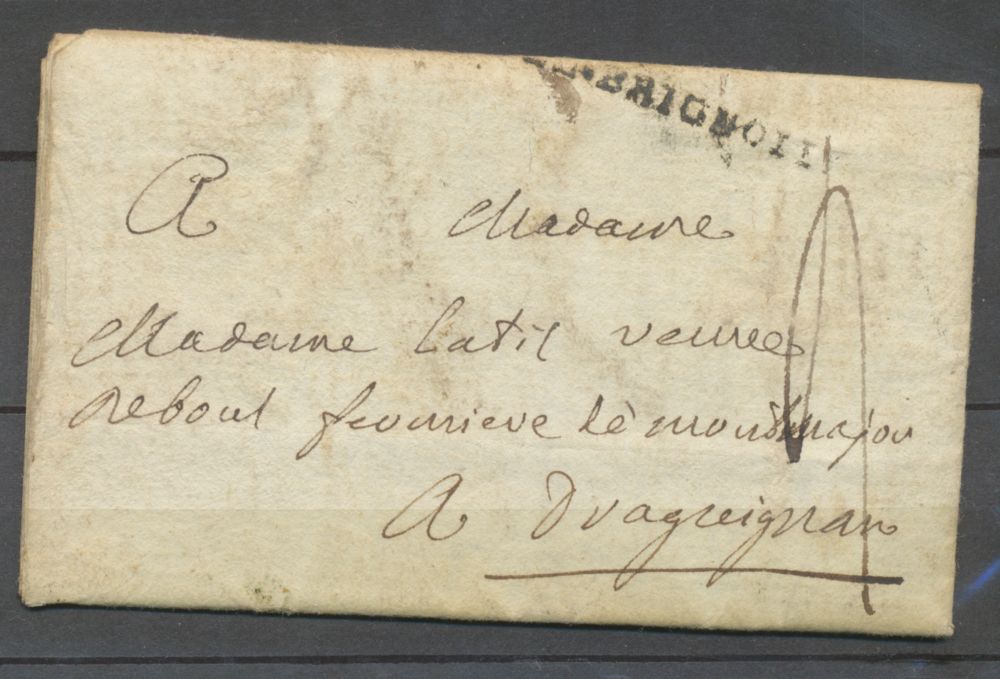 BRIGNOLL
A Madame
Madame latil veuve
Reboul fermiere de montmajor
A Dragueignan